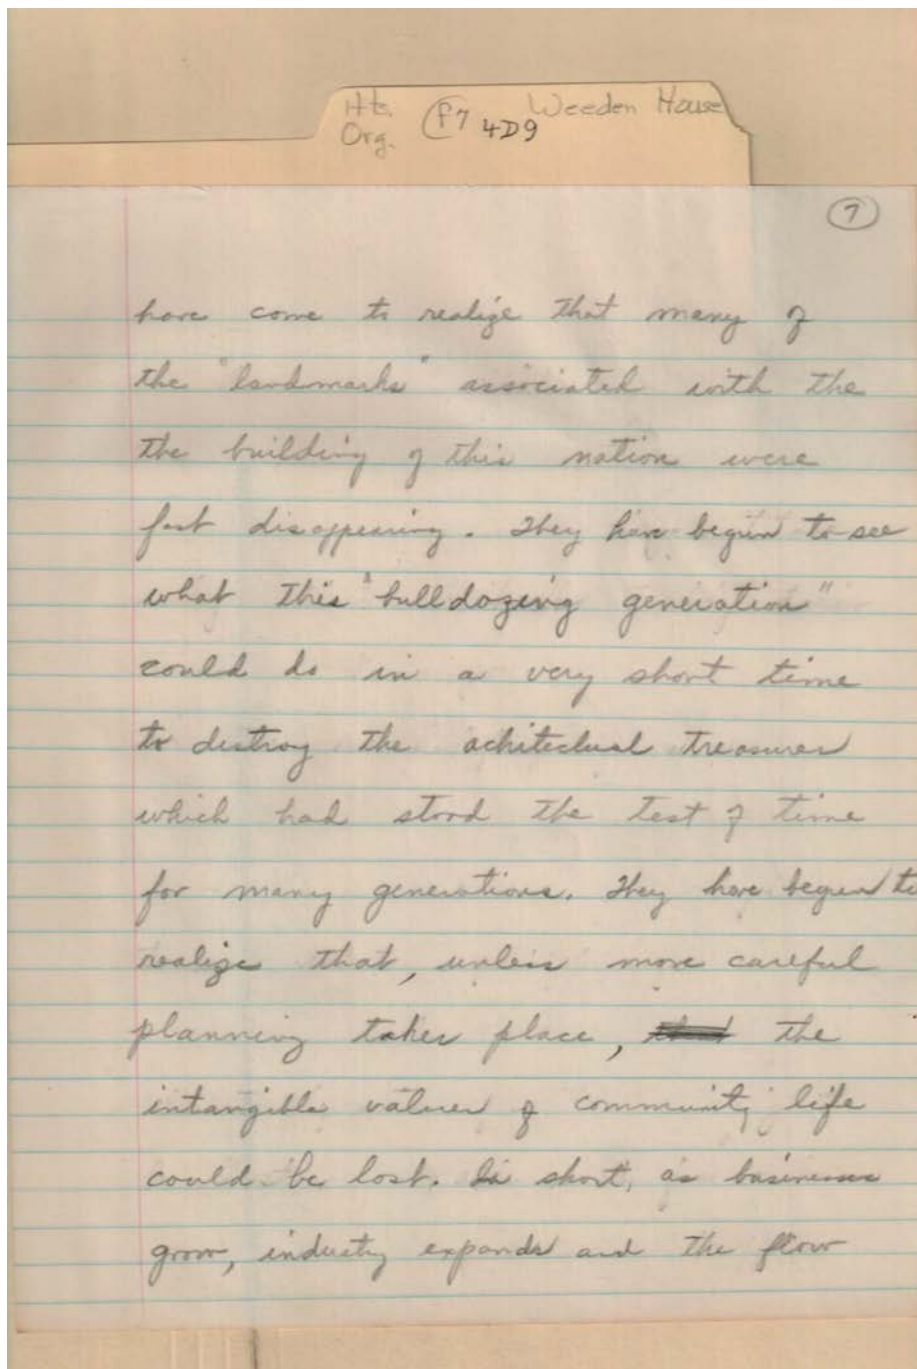 Hts. Org. F7 4D9 Weeden House
7
have come to realize that many of
the "landmarks" associated with the
the building of this nation were
fast disappearing. They have begun to see
what this "bulldozing generation"
could do in a very short time
to destroy the achitectual treasures
which had stood the test of time
for many generations. They have begun to
realize that, unless more careful
planning takes place, the
intangible values of community life
could be lost. In short, as businesses
grow, industry expands and the flow